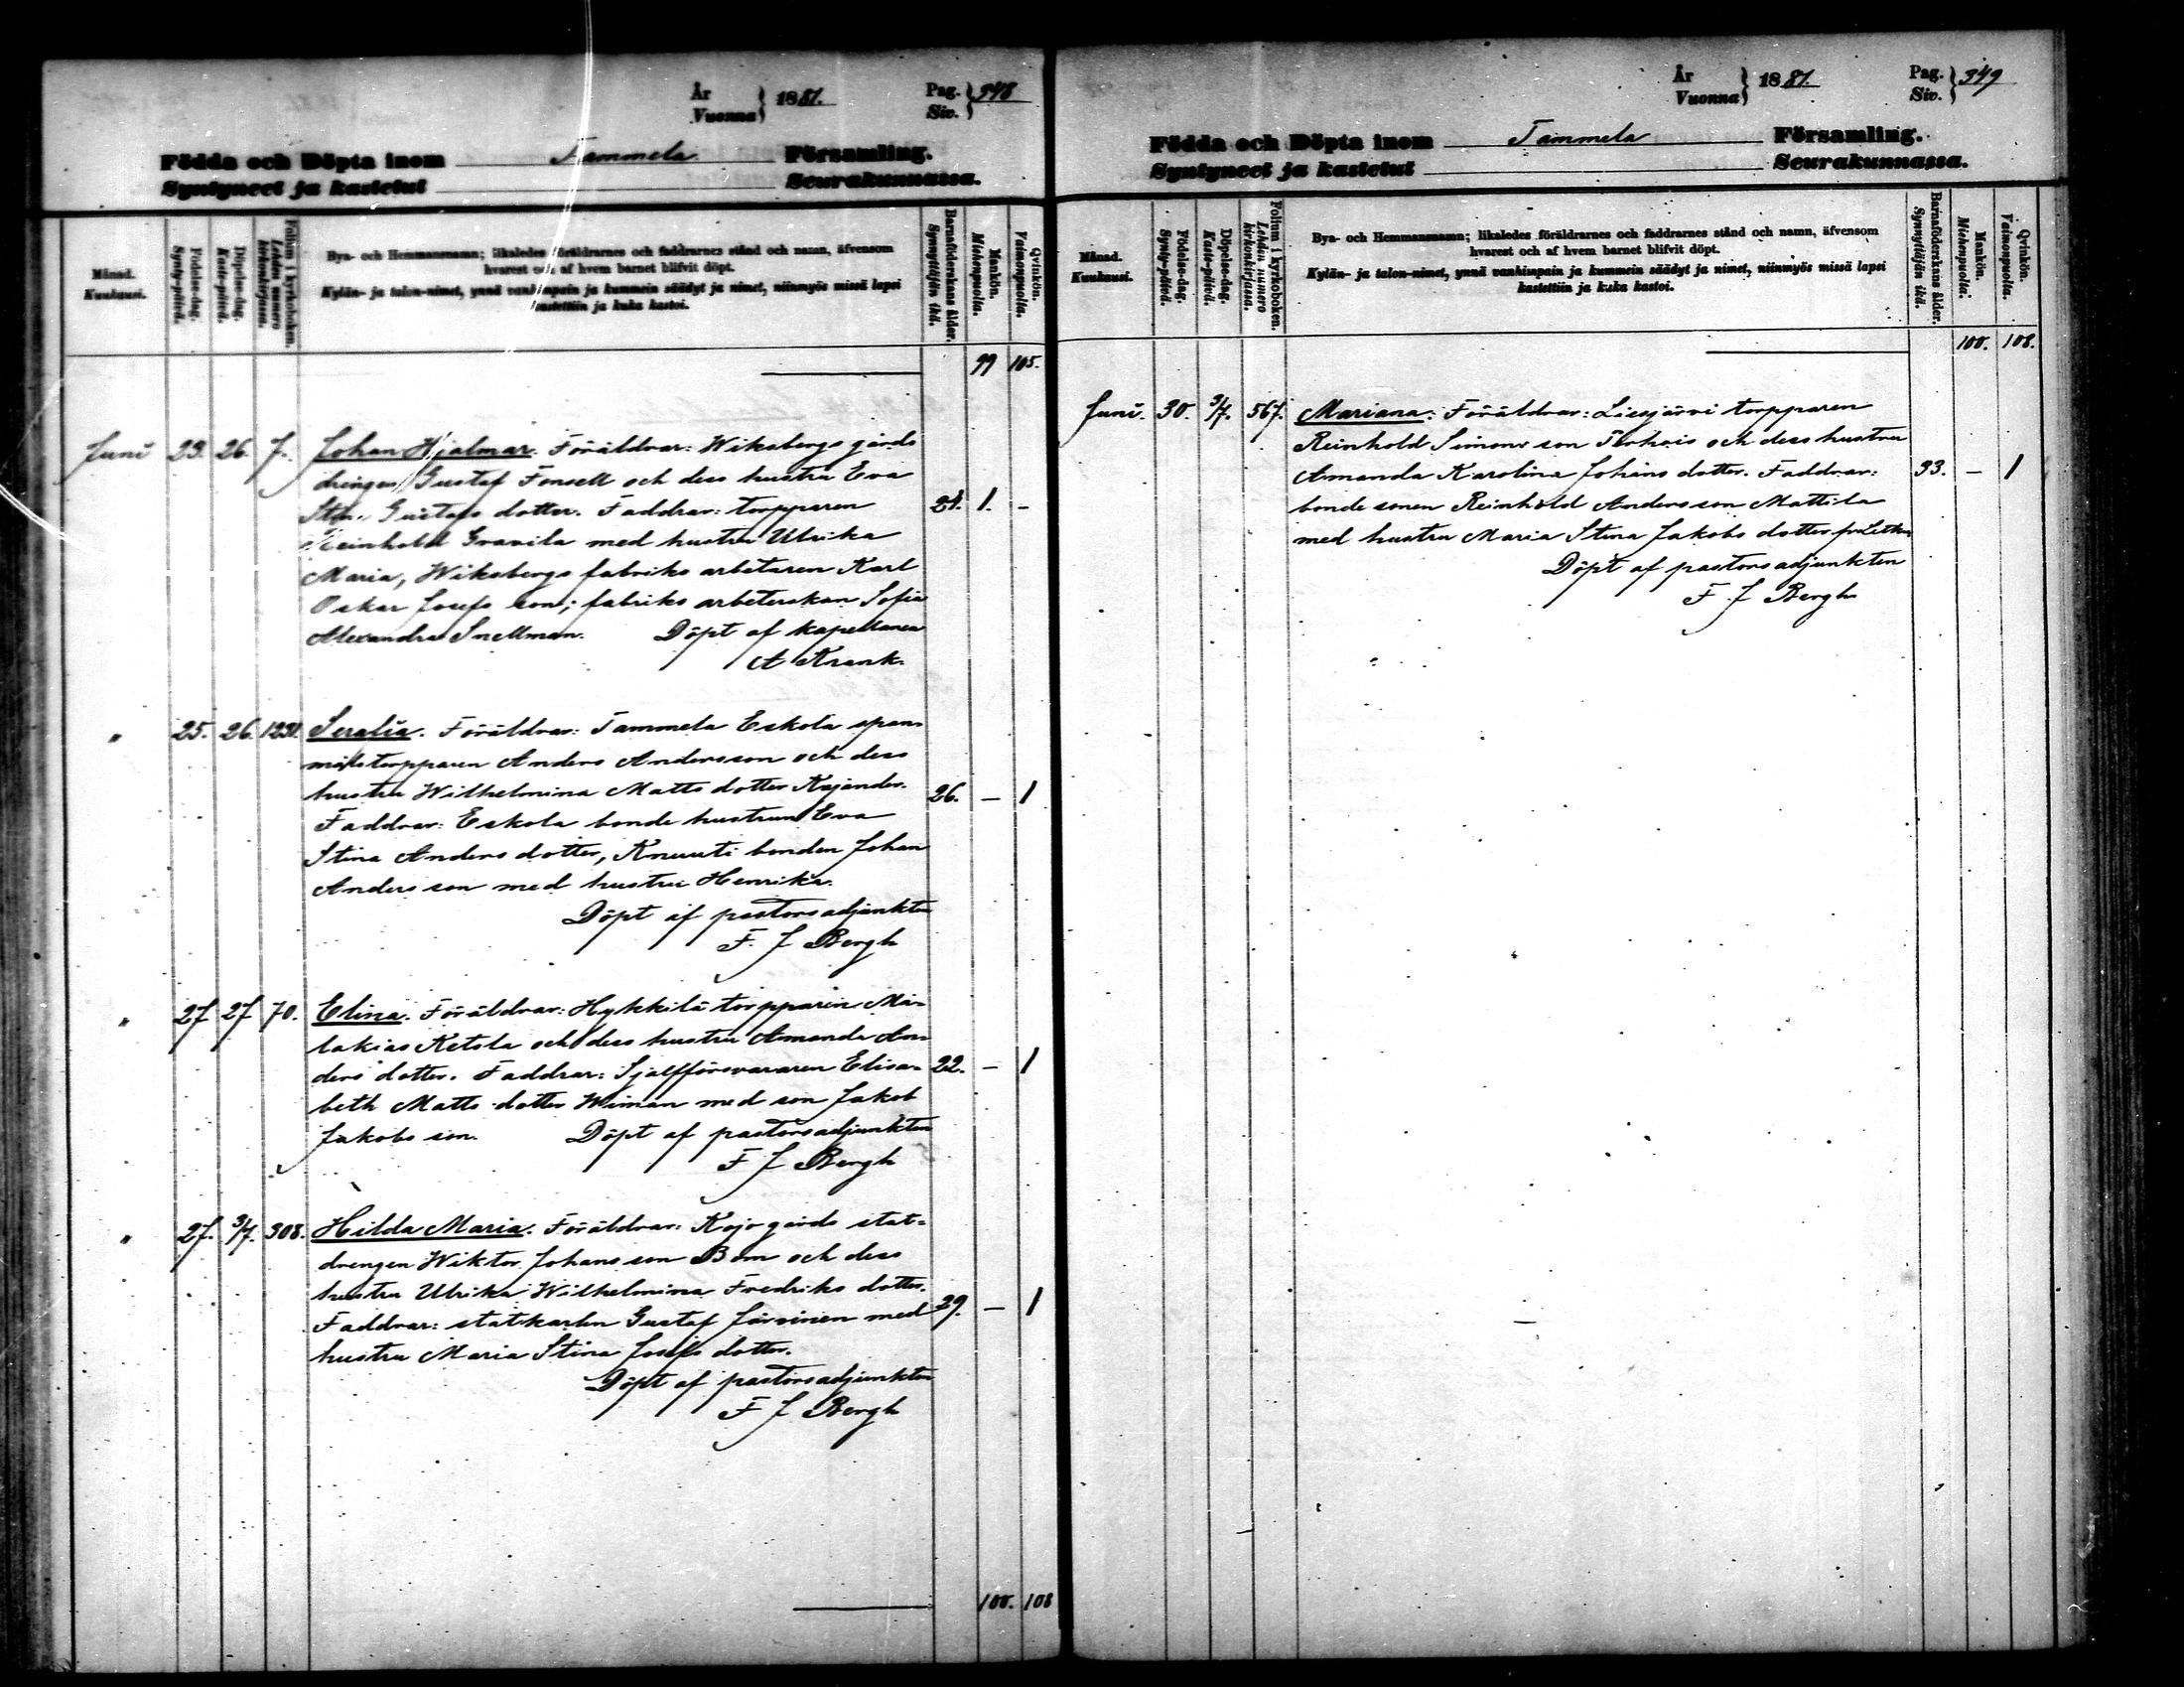 År
Vuonna } 1881.
Pag.
Siv. } 348
Födda och Döpta inom Tammela Församling.
Syntyneet ja kastetut Seurakunnassa.
Månad.
Kuukausi.
Födelse-dag.
Synty-päivä.
Döpelse-dag.
Kaste-päivä.
Folium i kyrkoboken.
Lehden numero
kirkonkirjassa.
Bya- och Hemmansnamn; likaledes föräldrarnes och faddrarnes stånd och namn, äfvensom
hvarest och af hvem barnet blifvit döpt.
Kylän- ja talon-nimet, ynnä vanhimpain ja kummein säädyt ja nimet, niinmyös missä lapsi
kastettiin ja kuka kastoi.
Barnaföderskans ålder.
Synnyttäjän ikä.
Mankön.
Miehenpuolta.
Qvinkön.
Vaimonpuolta.
99 105.
Juni 23. 26. 7. Johan Hjalmar. Föräldrar: Wiksbergs gårds
drängen Gustaf Fonsell och dess hustru Eva
Stina Gustafs dotter. Faddrar: torpparen 24. 1. -
Reinhold Gravila med hustru Ulrika
Maria, Wiksbergs fabriks arbetaren Karl
Oskar Josefs son; fabriks arbeterskan Sofia
Alexandra Snellman. Döpt af kapellanen
A Krank.
" 25. 26. 1231. Seralia. Föräldrar: Tammela Eskola span-
måls torpparen Anders Andersson och dess
hustru Wilhelmina Matts dotter Kajander. 26. – 1
Faddrar: Eskola bonde hustrun Eva
Stina Anders dotter, Knuuti bonden Johan
Anders son med hustru Henrika.
Döpt af pastorsadjunkten
F. J Bergh
" 27 27 70. Elina. Föräldrar: Hykkilä torpparen Ma-
lakias Ketola och dess hustru Amanda An-
ders dotter. Faddrar: Sjelfförsvararen Elisa- 22. – 1
beth Matts dotter Wiman med son Jakob
Jakobs son. Döpt af pastorsadjunkten
F J Bergh
" 27. 3/7. 308. Hilda Maria. Föräldrar: Kojo gårds stat-
drengen Wiktor Johans son Bom och dess
hustru Ulrika Wilhelmina Fredriks dotter.
Faddrar: statkarlen Gustaf Järvinen med 29. – 1
hustru Maria Stina Josefs dotter.
Döpt af pastorsadjunkten
F J Bergh
100. 108
År
Vuonna } 1881.
Pag.
Siv. } 349
Födda och Döpta inom Tammela Församling.
Syntyneet ja kastetut Seurakunnassa.
Månad.
Kuukausi.
Födelse-dag.
Synty-päivä.
Döpelse-dag.
Kaste-päivä.
Folium i kyrkoboken.
Lehden numero
kirkonkirjassa.
Bya- och Hemmansnamn; likaledes föräldrarnes och faddrarnes stånd och namn, äfvensom
hvarest och af hvem barnet blifvit döpt.
Kylän- ja talon-nimet, ynnä vanhimpain ja kummein säädyt ja nimet, niinmyös missä lapsi
kastettiin ja kuka kastoi.
Barnaföderskans ålder.
Synnyttäjän ikä.
Mankön.
Miehenpuolta.
Qvinkön.
Vaimonpuolta.
100. 108.
Juni. 30. 3/7. 567. Mariana: Föräldrar: Liesjärvi torpparen
Reinhold Simons son Terhois och dess hustru
Amanda Karolina Johans dotter. Faddrar: 33. – 1
bonde sonen Reinhold Anders son Mattila
med hustru Maria Stina Jakobs dotter
Döpt af pastorsadjunkten
F. J Bergh